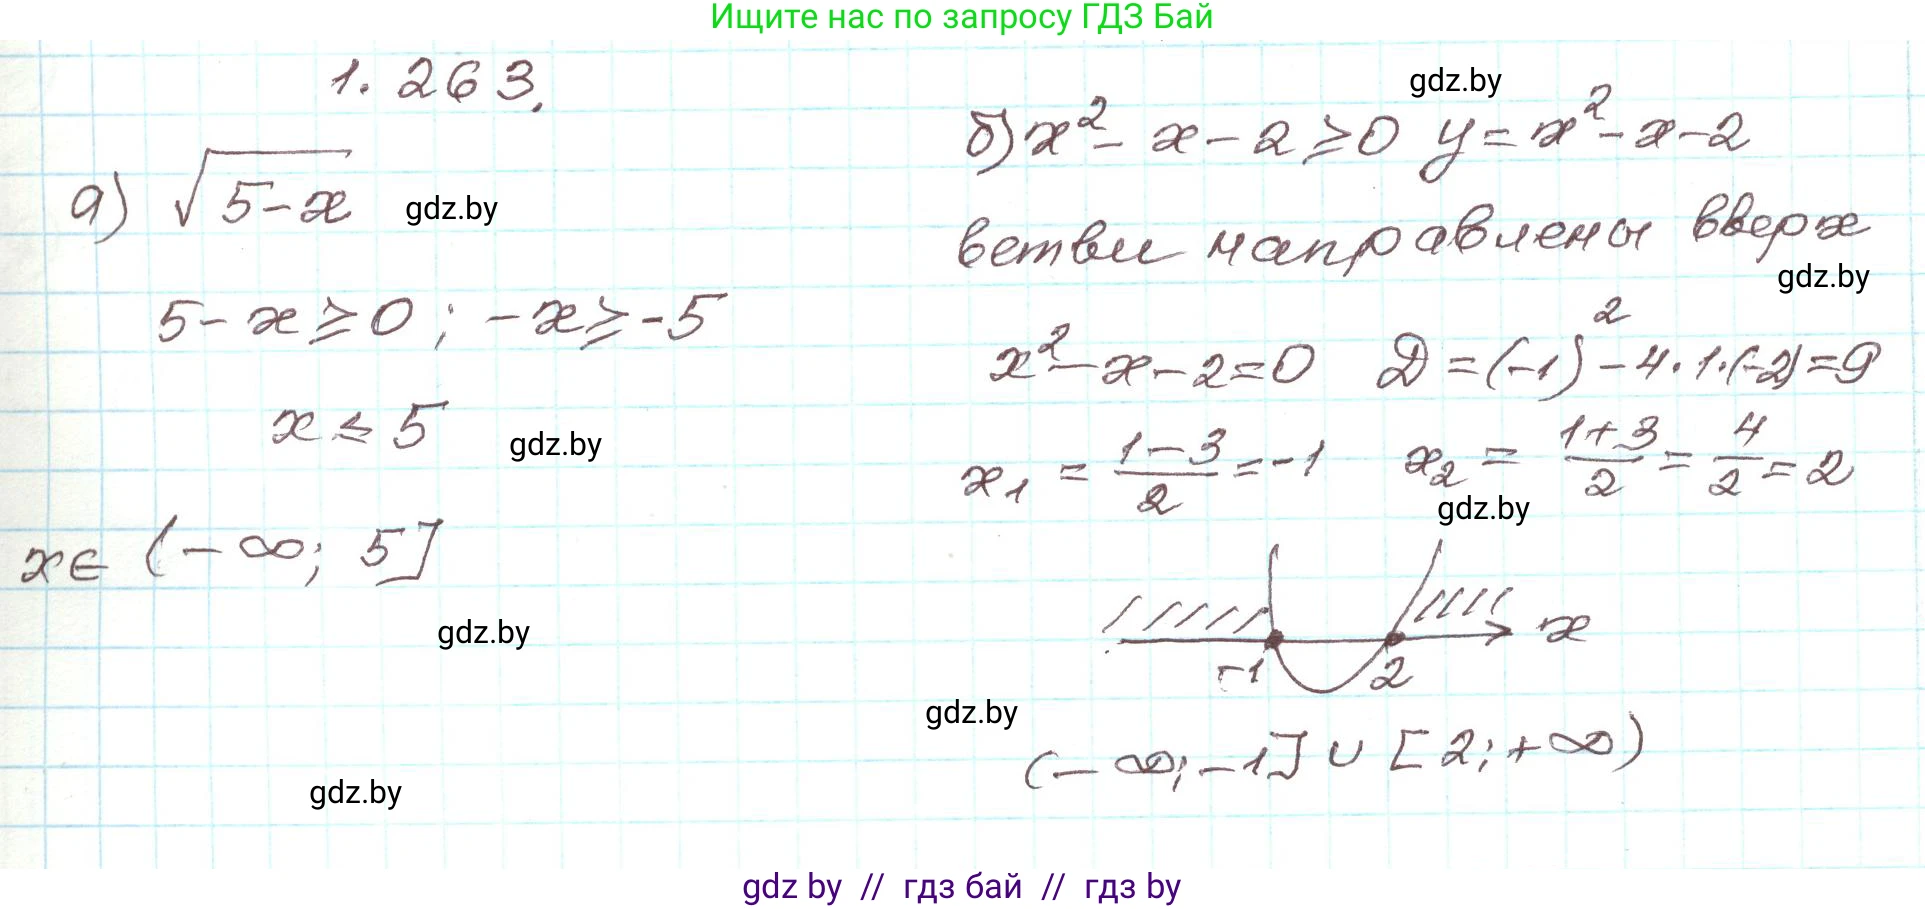 Ищите нас по запросу ГДЗ Бай
1.263.
а) √(5-x)
gdz.by
5-x≥0; -x≥-5
x≤5
gdz.by
x∈ (-∞; 5]
gdz.by
gdz.by
gdz.by
б) x²-x-2≥0 y=x²-x-2
ветви направлены вверх
gdz.by
x²-x-2=0 Д=(-1)²-4·1·(-2)=9
x₁ = (1-3)/2 = -1 x₂ = (1+3)/2 = 4/2 = 2
gdz.by
x
-1 2
gdz.by
(-∞;-1] ∪ [2;+∞)
gdz by // гдз бай // гдз by